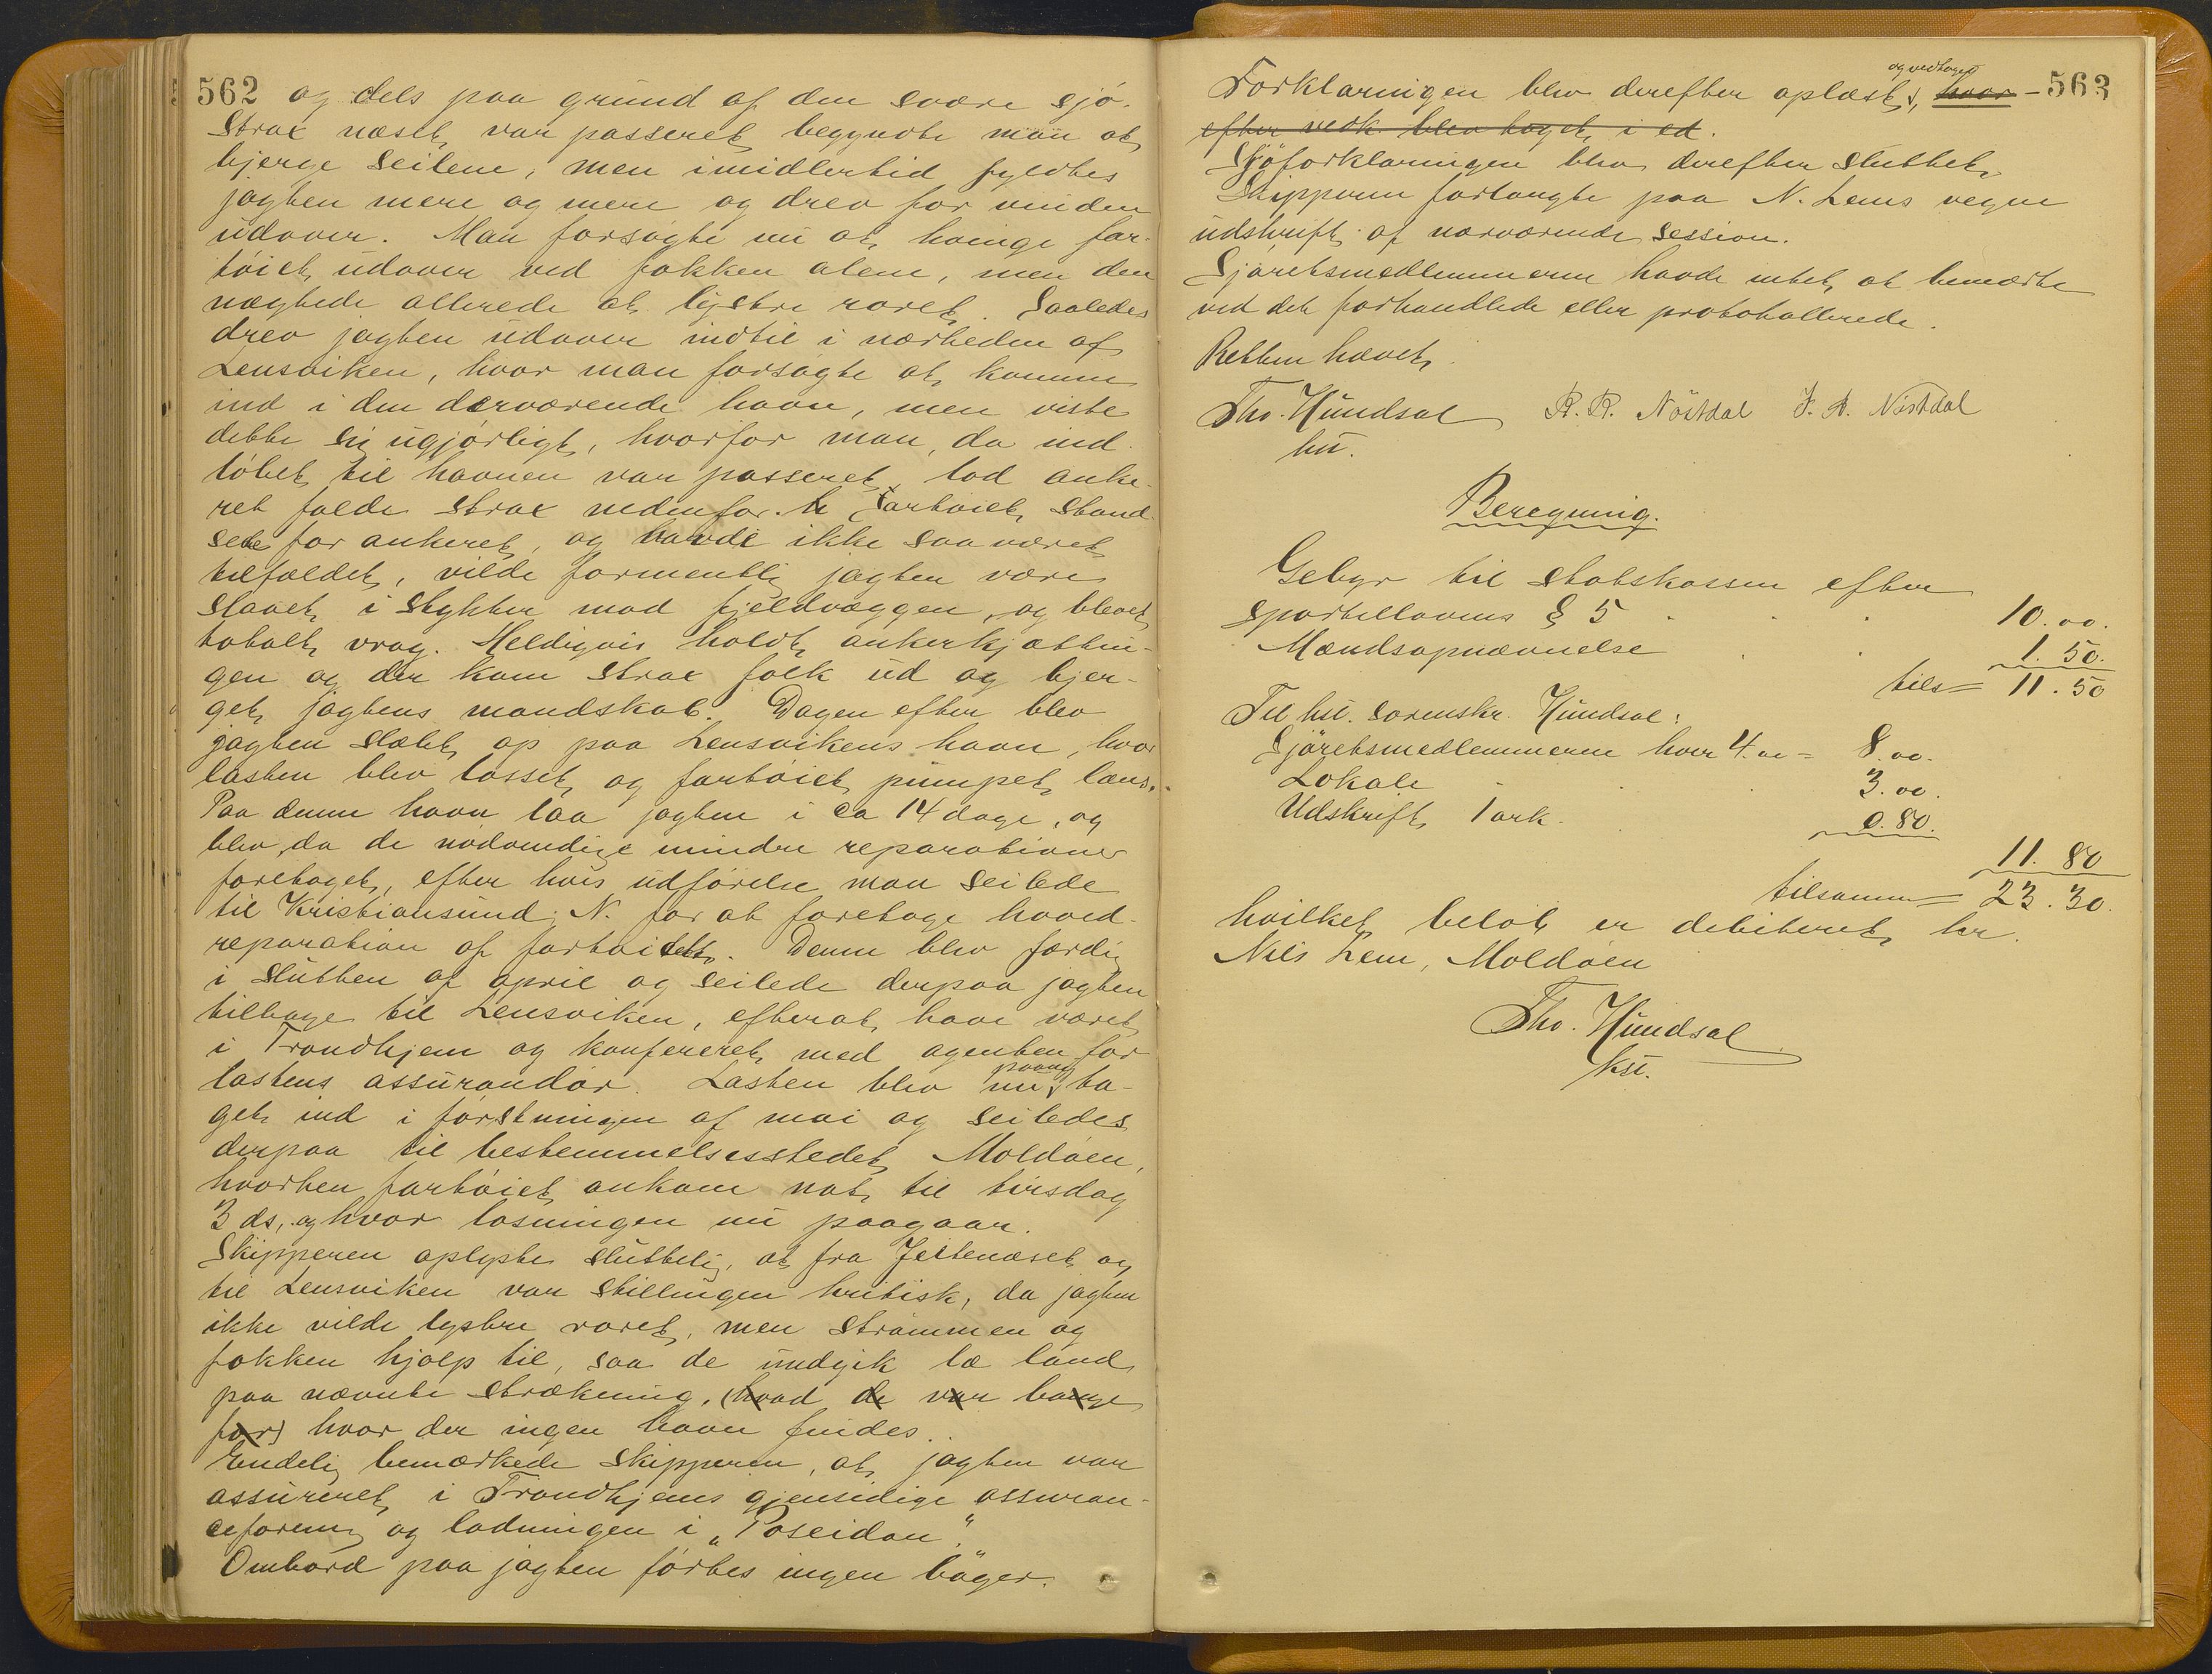 562 og dels paa grund af den svære sjö.
Strax næset var passeret begyndte man at
bjerge seilene, men imidlertid fyldtes
jagten mere og mere og drev for vinden
udover. Man forsøgte nu at tvinge far-
töiet udover ved fokken alene, men den
nægtede allerede at lystre roret. Saaledes
drev jagten udover indtil i nærheden af
Lensviken, hvor man forsøgte at komme
ind i den derværende havn, men viste
dette sig ugjørligt, hvorfor man, da ind-
löbet til havnen var passeret, lod anke-
ret falde strax nedenfor. Fartöiet stand-
sede for ankeret, og havde ikke saa været
tilfældet, vilde formentlig jagten være
slaaet i stykker mod fjeldvæggen, og blevet
totalt vrag. Heldigvis holdt ankerkjættin-
gen og der kom strax folk ud og bjer-
get jagtens mandskab. Dagen efter blev
jagten slæbt op paa Lensvikens havn, hvor
lasten blev losset og fartöiet pumpet læns.
Paa denne havn laa jagten i ca 14 dage, og
blev da de nödvendige mindre reparationer
foretaget, efter hvis udförelse man seilede
til Kristiansund N. for at foretage hoved-
reparation af fartöiet. Denne blev færdig
i slutten af april og seilede derpaa jagten
tilbage til Lensviken, efterat have været
i Trondhjem og konfereret med agenten for
lastens assurandör. Lasten blev nu paany ta-
get ind i förstningen af mai og seiledes
derpaa til bestemmelsesstedet Moldöen,
hvorhen fartöiet ankom nat til tirsdag
3 ds, og hvor losningen nu paagaar.
Skipperen oplyste sluttelig, at fra Jeltenæset og
til Lensviken var stillingen kritisk, da jagten
ikke vilde lystre roret, men strömmen og
fokken hjalp til, saa de undgik læ land
paa nævnte strækning, (hvad de var bange
for) hvor der ingen havn findes.
Endelig bemærkede skipperen, at jagten var
assureret i Trondhjems gjensidige assuran-
ceforening og ladningen i "Poseidon".
Ombord paa jagten förtes ingen böger.
Forklaringen blev derefter oplæst og vedtaget, hvor- 563
efter vedk. blev taget i ed.
Sjöforklaringen blev derefter sluttet.
Skipperen forlangte paa N. Lems vegne
udskrift af nærværende session.
Sjöretsmedlemmerne havde intet at bemærke
ved det forhandlede eller protokollerede.
Retten hævet.
Tho. Hundsal R. R. Nöstdal J. A. Nöstdal
kst.
Beregning.
Gebyr til statskassen efter
sportellovens § 5 . . 10.00.
Mændsopnævnelse . . 1.50.
tils = 11.50
Til kst. sorenskr. Hundsal:
Sjöretsmedlemmerne hver 4.00 = 8.00.
Lokale . . 3.00.
Udskrift 1 ark. . 0.80.
11.80
tilsammen = 23.30.
hvilket belöb er debiteret hr.
Nils Lem, Moldöen
Tho. Hundsal
kst.